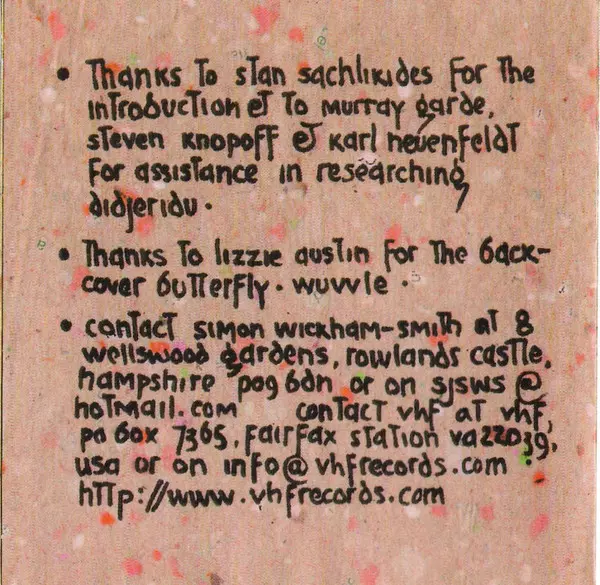 • Thanks to stan sachlikides for the
introduction et to murray garde,
steven knopoff et karl neuenfeldt
for assistance in researching
didjeridu.
• Thanks to lizzie austin for the back-
cover butterfly. wuvvle.
• contact simon wickham-smith at 8
wellswood gardens, rowlands castle,
hampshire po9 6dn or on sjsws@
hotmail.com contact vhf at vhf,
po box 7365, fairfax station va22039,
usa or on info@vhfrecords.com
http://www.vhfrecords.com